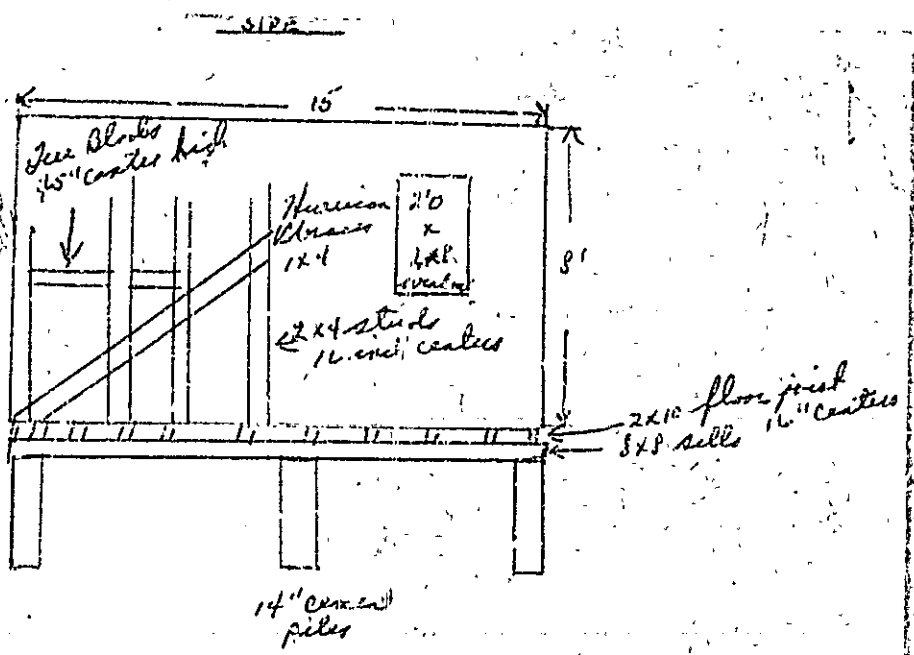 SIDE
15'
Fire Blocks
45" center high
Hurrican
Braces
1x4
2'0
x
8'
2x4 studs
16 inch centers
2x10 floor joist
16" centers
8x8 sills
14" cement
piles